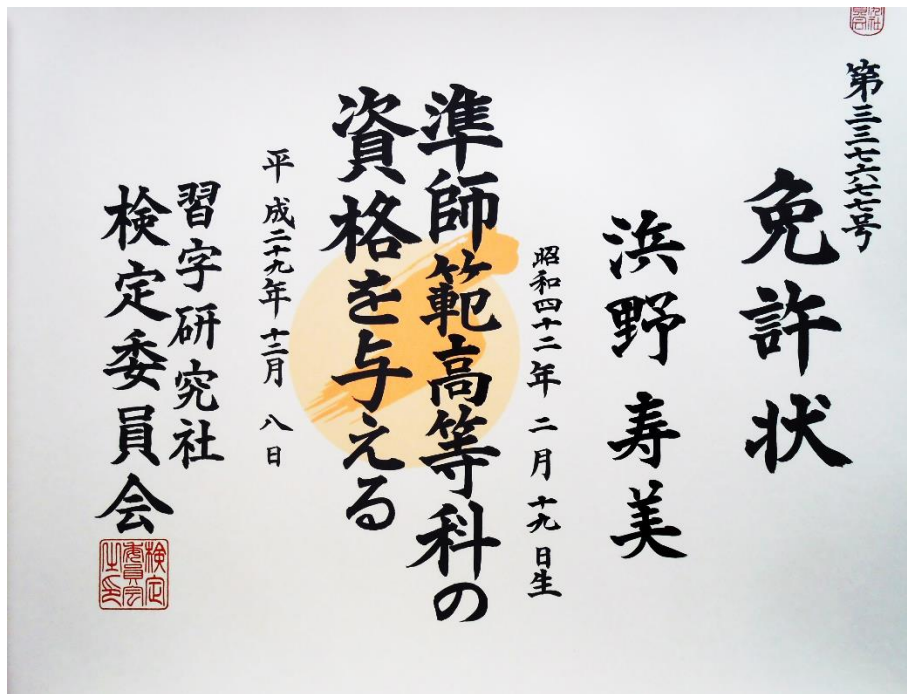 第三三七六七七号
免許状
浜野寿美
昭和四十二年二月十九日生
準師範高等科の
資格を与える
平成二十九年十二月八日
習字研究社
検定委員会